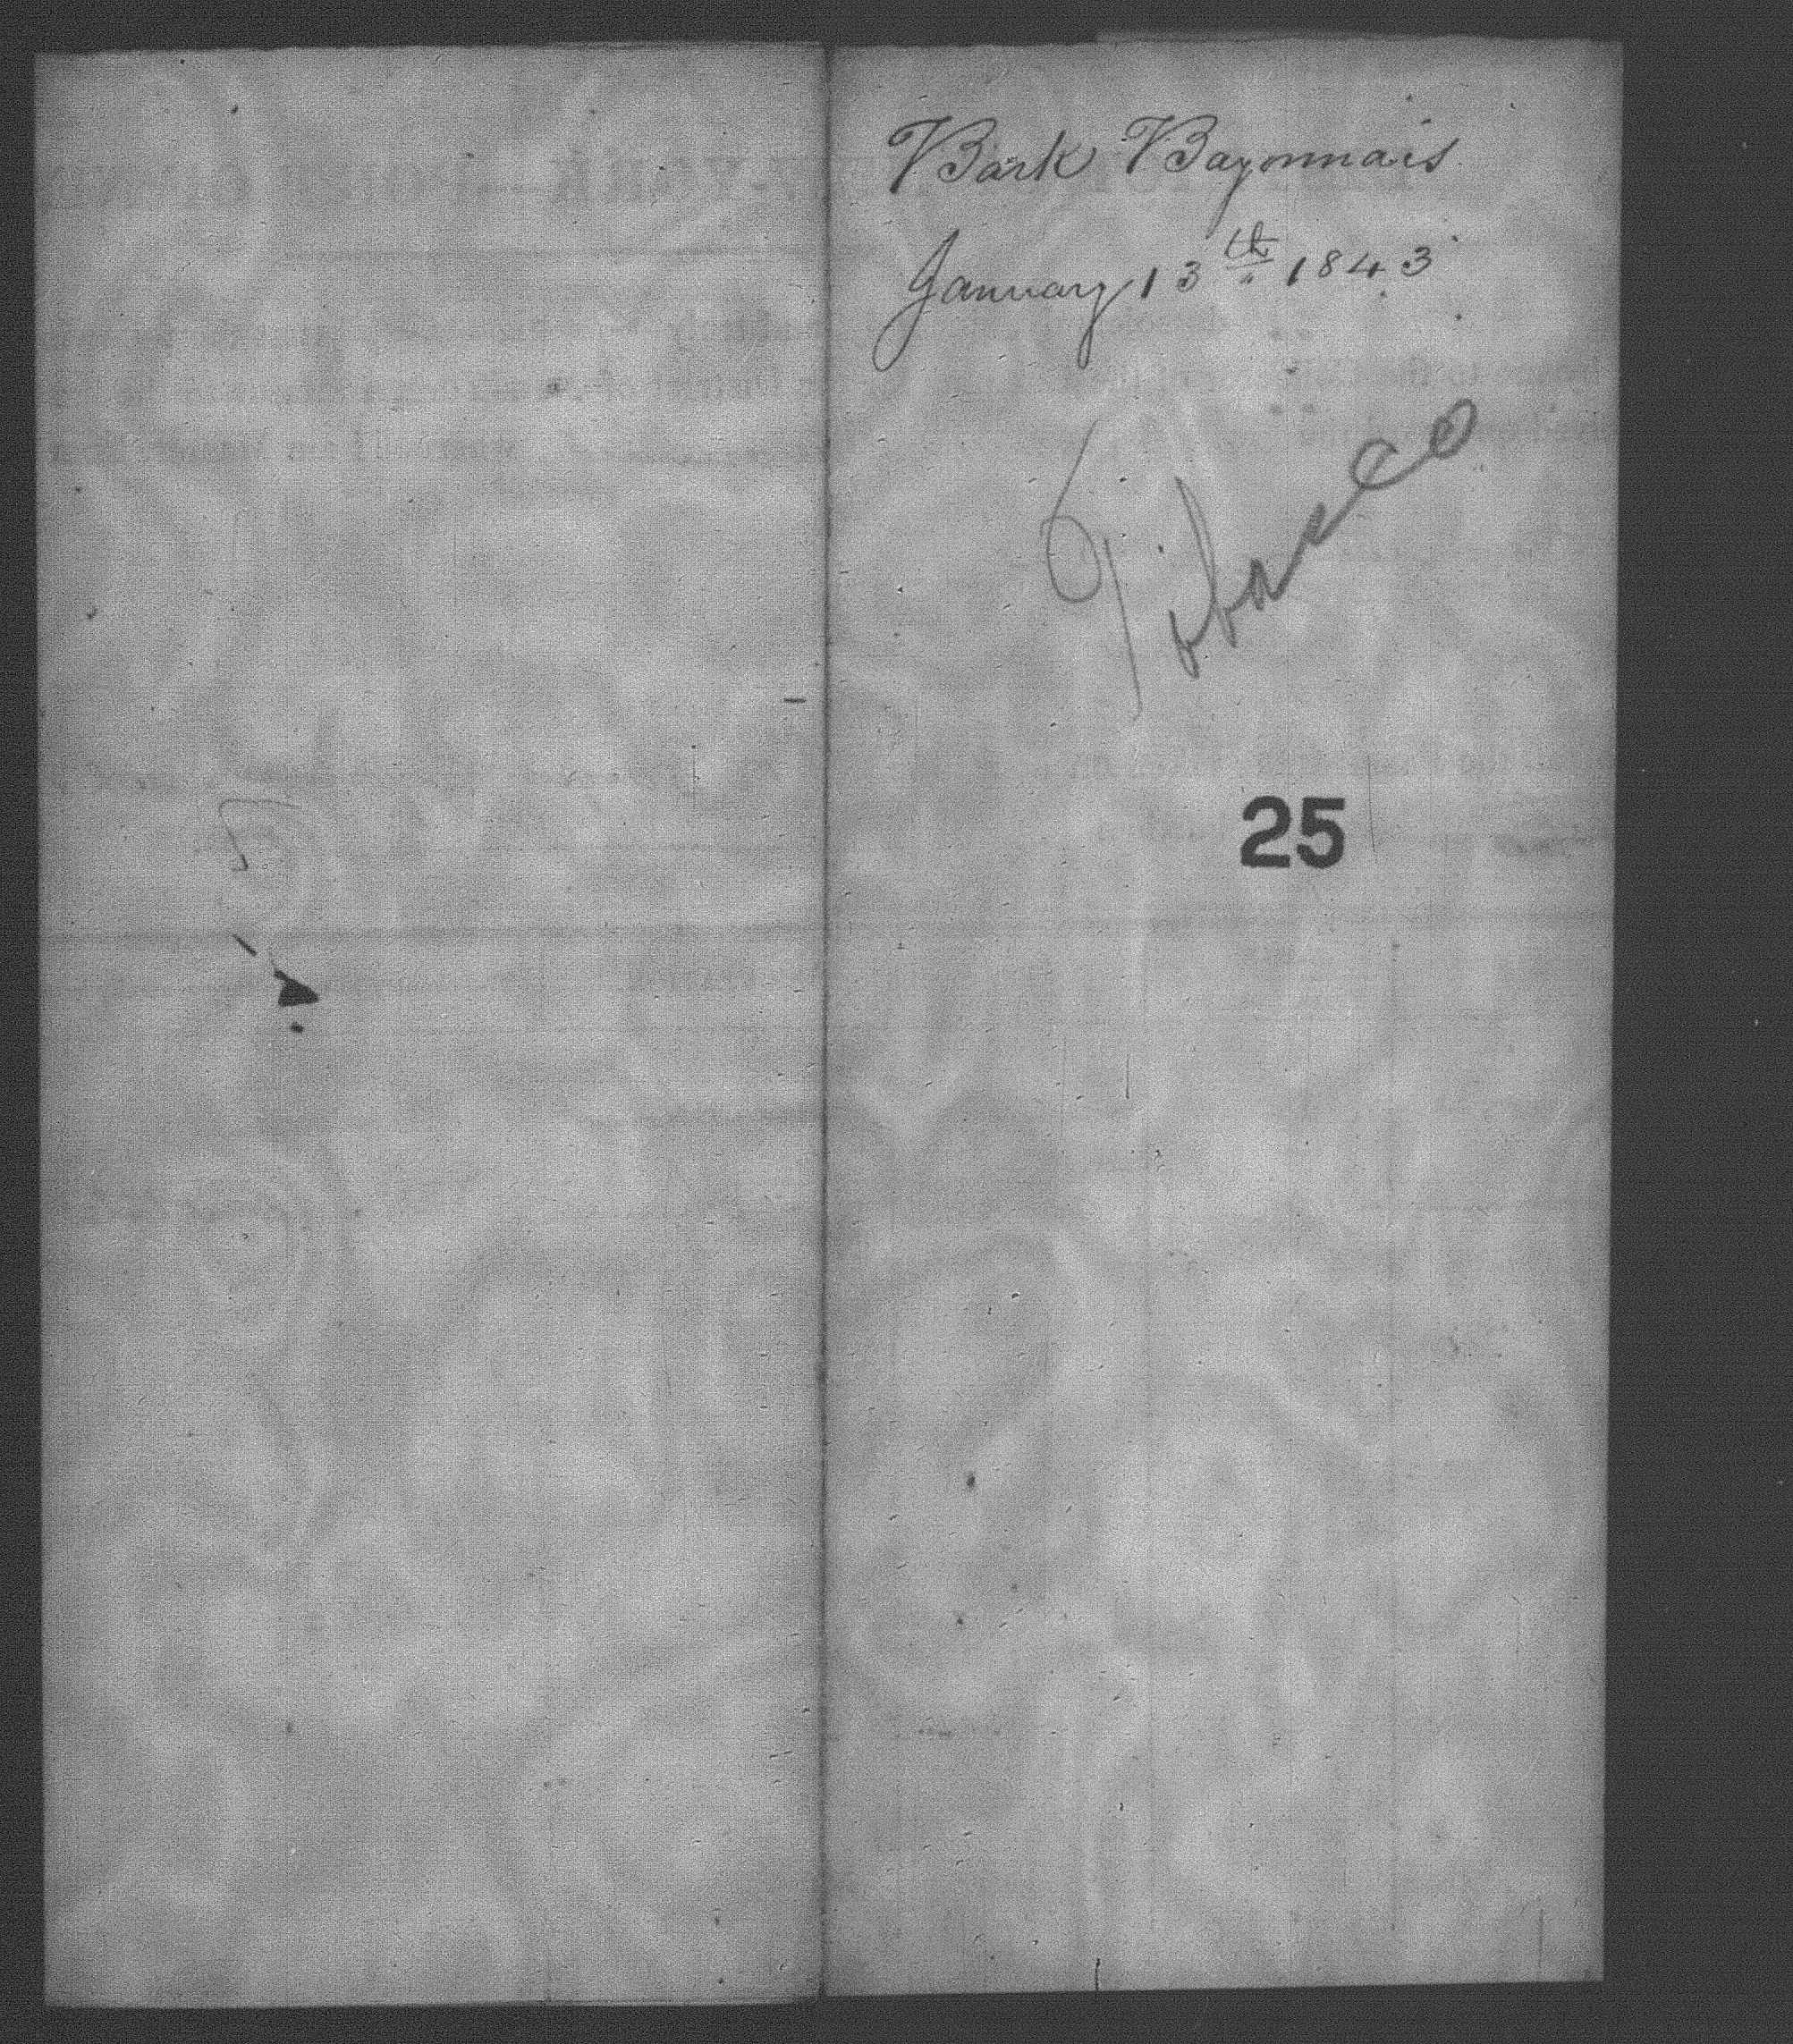 Bark Bayonnais
January 13th 1843
Tobacco
25